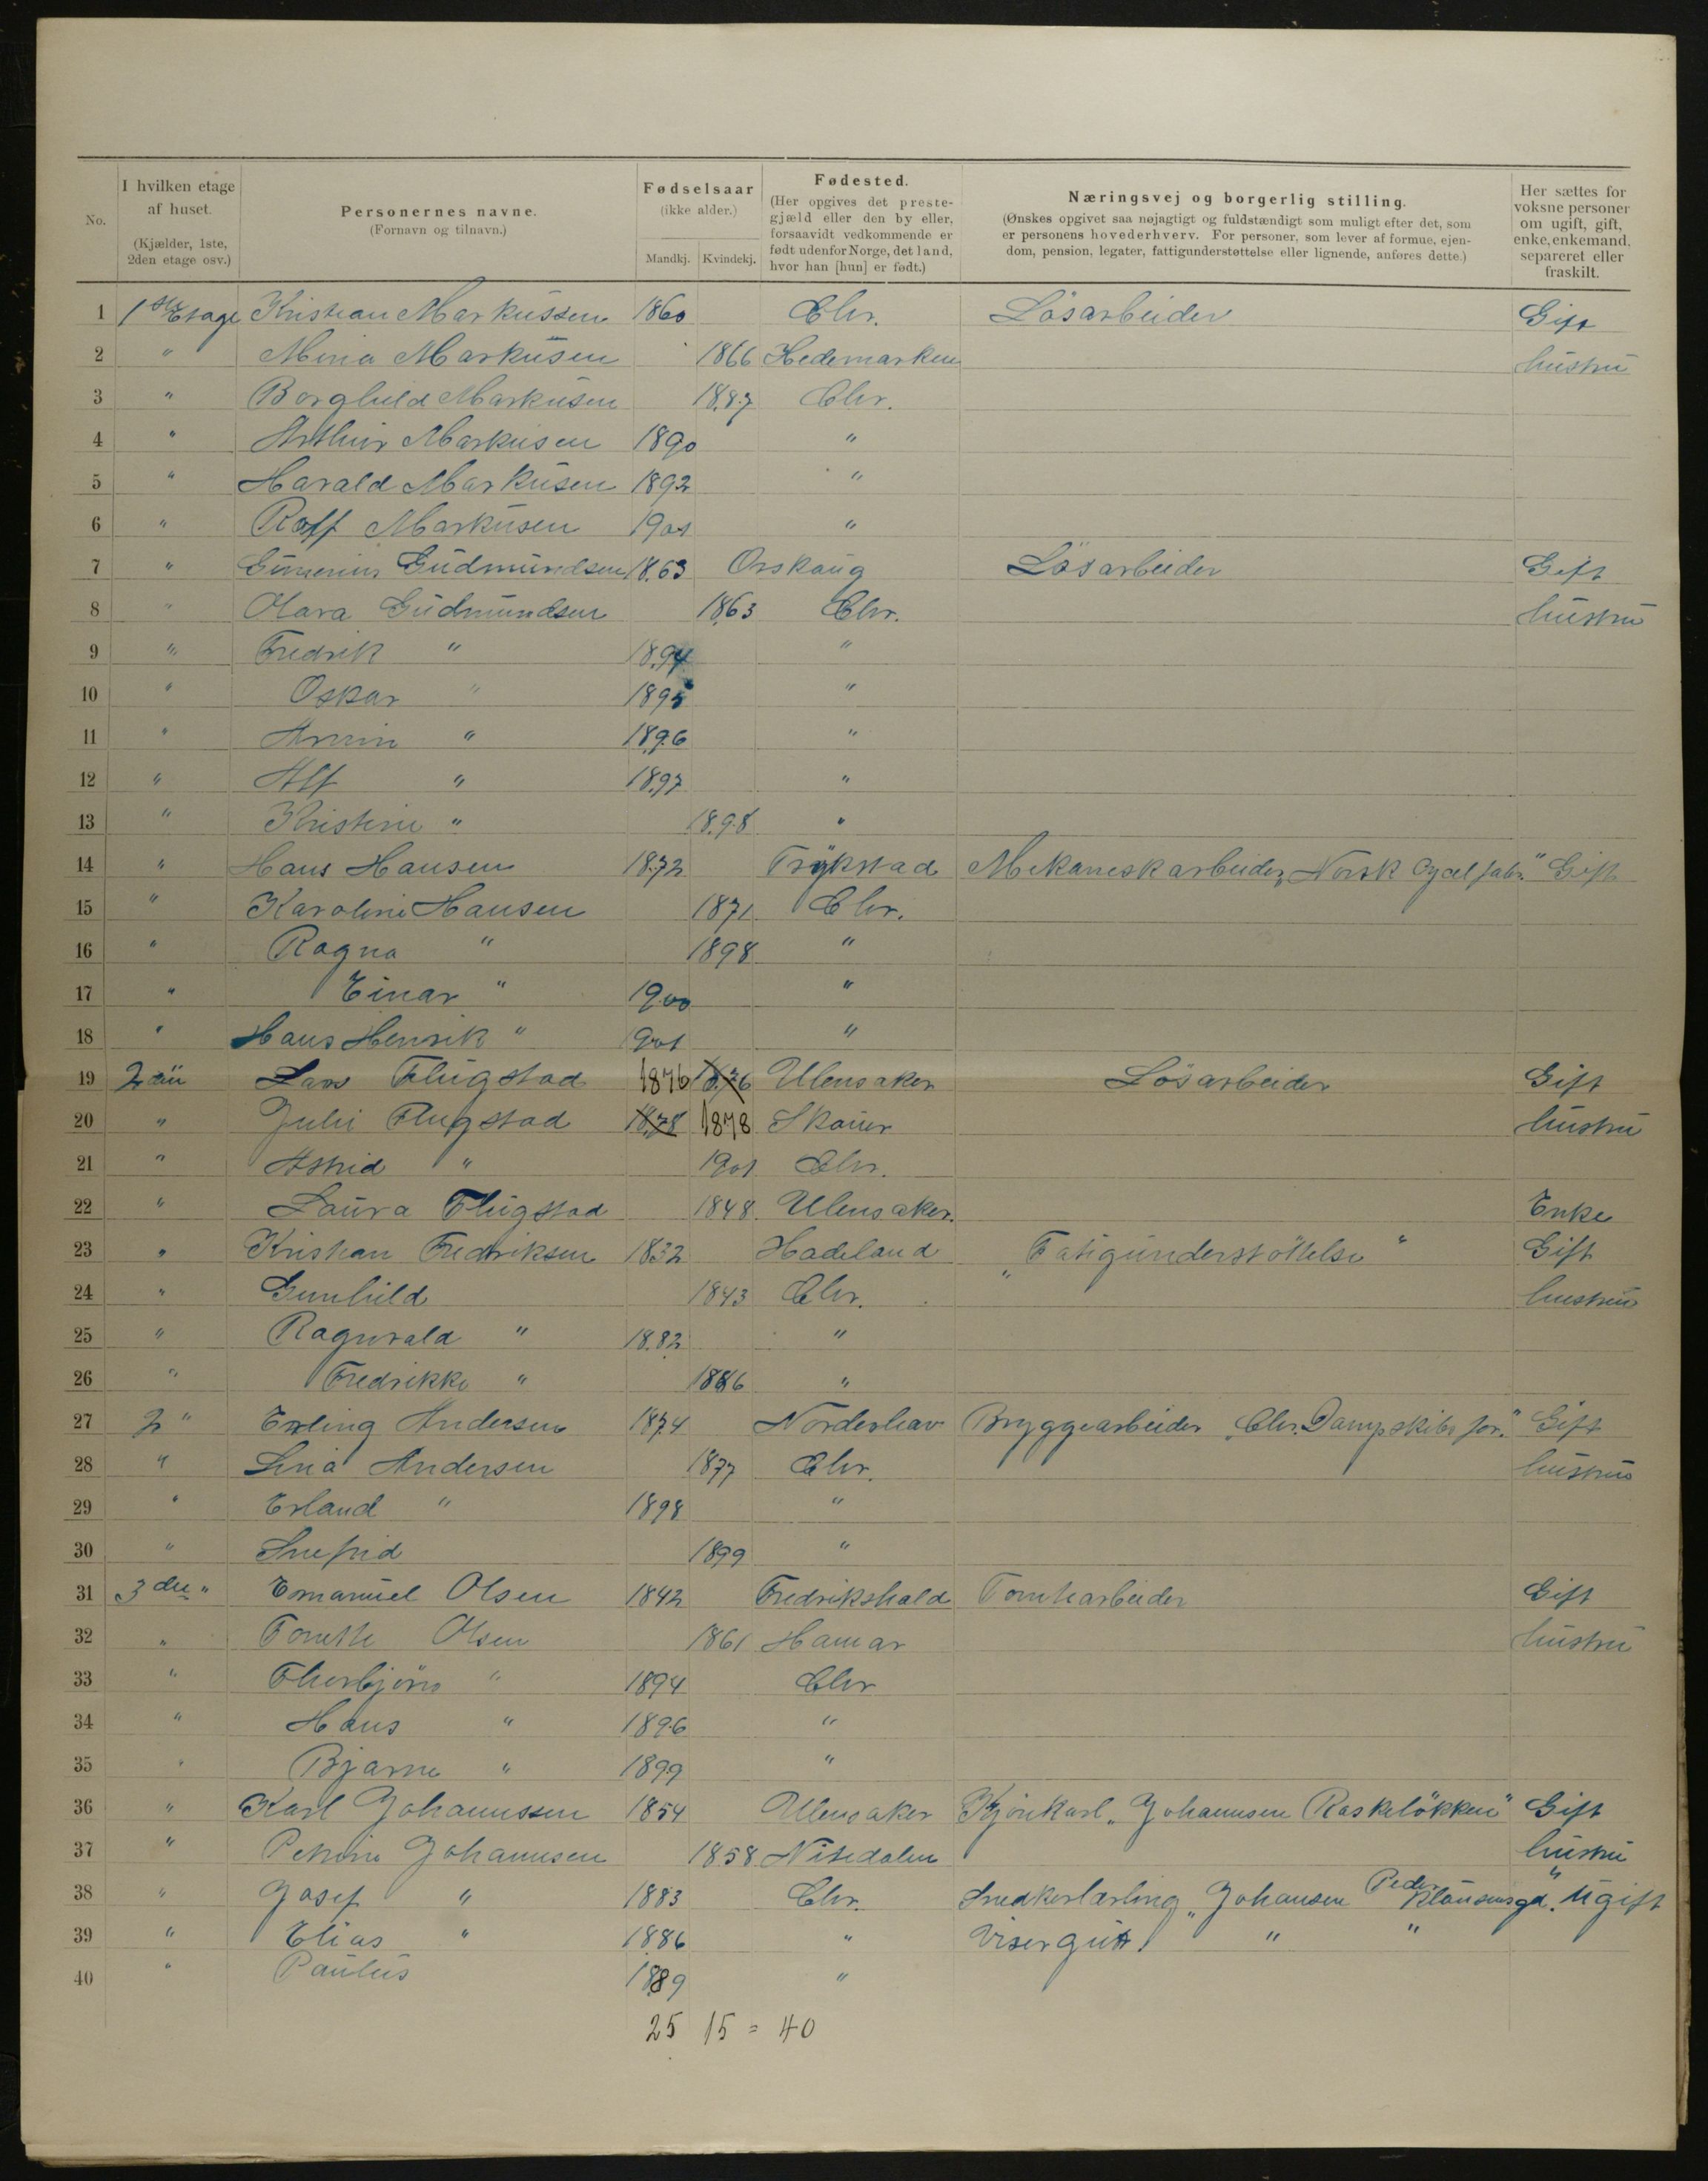 No.
I hvilken etage
af huset.
(Kjælder, 1ste,
2den etage osv.)
Personernes navne.
(Fornavn og tilnavn.)
Fødselsaar
(ikke alder.)
Mandkj. Kvindekj.
Fødested.
(Her opgives det preste-
gjæld eller den by eller,
forsaavidt vedkommende er
født udenfor Norge, det land,
hvor han [hun] er født.)
Næringsvej og borgerlig stilling.
(Ønskes opgivet saa nøjagtigt og fuldstændigt som muligt efter det, som
er personens hovederhverv. For personer, som lever af formue, ejen-
dom, pension, legater, fattigunderstøttelse eller lignende, anføres dette.)
Her sættes for
voksne personer
om ugift, gift,
enke, enkemand,
separeret eller
fraskilt.
1 1ste Etage Kristian Markussen 1860 Chr. Lösarbeider Gift
2 " Mina Markusen 1866 Hedemarken hustru
3 " Borghild Markusen 1887 Chr.
4 " Arthur Markusen 1890 "
5 " Harald Markusen 1892 "
6 " Rolf Markusen 1901 "
7 " Gudmundsen 1863 Orskaug Lösarbeider Gift
8 " Olava Gudmundsen 1863 Chr. hustru
9 " Fredrik " 1894 "
10 " Oskar " 1895 "
11 " Armin " 1896 "
12 " Alf " 1897 "
13 " Kristine " 1898 "
14 " Hans Hansen 1872 Trykstad Mekaniskarbeider „Norsk Cycel fabr." Gift
15 " Karoline Hansen 1871 Chr.
16 " Ragna " 1898 "
17 " Einar " 1900 "
18 " Hans Henrik " 1901 "
19 2den Lars Flugstad 1876 1876 Ulensaker Lösarbeider Gift
20 " Juli Flugstad 1878 1878 Skouer hustru
21 " Astrid " 1901 Chr.
22 " Laura Flugstad 1848 Ulensaker. Enke
23 " Kristian Fredriksen 1832 Hadeland „Fatigunderstöttelse" Gift
24 " Gunhild 1843 Chr. hustru
25 " Ragnvald " 1882 "
26 " Fredrikke " 1886 "
27 2 " Erling Andersen 1874 Norderhav Bryggearbeider „Chr. Dampskibs for." Gift
28 " Lina Andersen 1877 Chr. hustru
29 " Erland " 1898 "
30 " 1899 "
31 3die " Emanuel Olsen 1842 Fredrikshald Tomtearbeider Gift
32 " Tomette Olsen 1861 Hamar hustru
33 " Thorbjörn " 1894 Chr
34 " Hans " 1896 "
35 " Bjarne " 1899 "
36 " Karl Johannssen 1854 Ulensaker Kjörekarl „Johannsen Raskelökken" Gift
37 " Petrine Johannsen 1858 Nitedalen hustru
38 " Josef " 1883 Chr. Snedkerlærling „Johansen Peder Klausensgd." Ugift
39 " Elias " 1886 " Visergut " "
40 " Paulus 1889 "
25 15 = 40